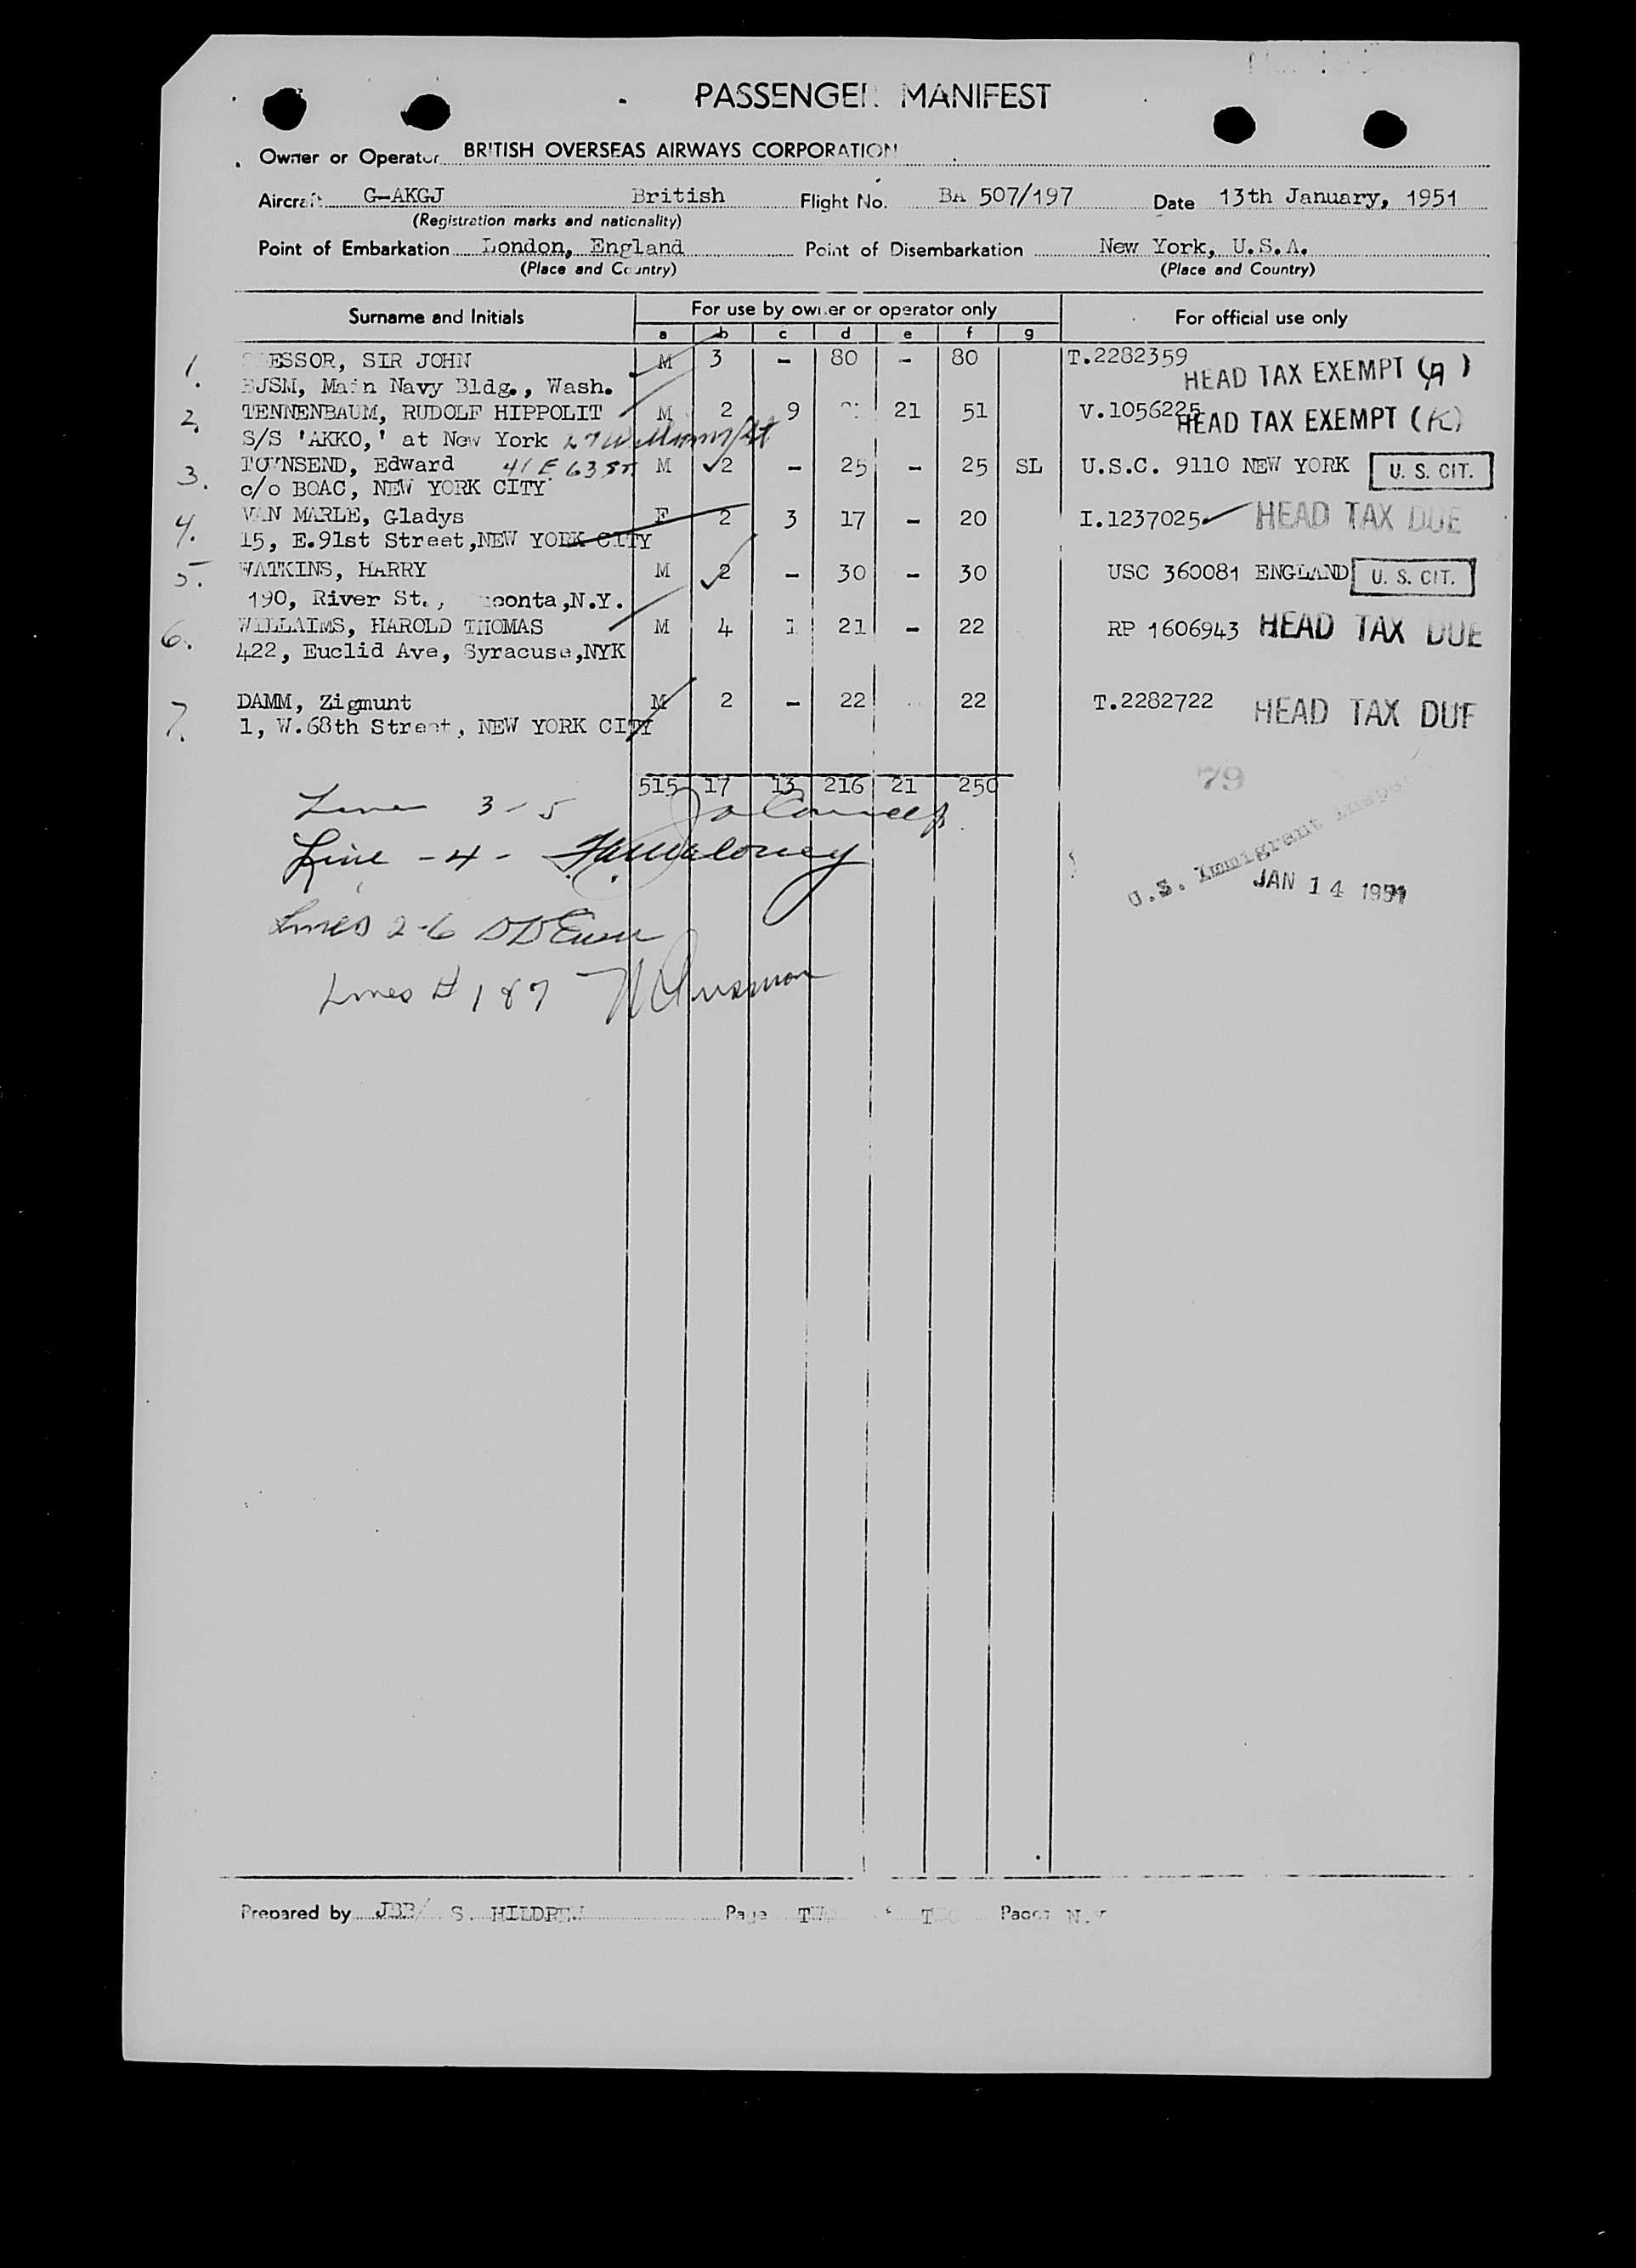 PASSENGER MANIFEST
Owner or Operator BRITISH OVERSEAS AIRWAYS CORPORATION
Aircraft G-AKGJ British Flight No. BA 507/197 Date 13th January, 1951
(Registration marks and nationality)
Point of Embarkation London, England Point of Disembarkation New York, U.S.A.
(Place and Country) (Place and Country)
Surname and Initials For use by owner or operator only For official use only
a b c d e f g
1. ESSOR, SIR JOHN M 3 - 80 - 80 T.2282359
BJSM, Main Navy Bldg., Wash. HEAD TAX EXEMPT (A)
2. TENNENBAUM, RUDOLF HIPPOLIT M 2 9 21 51 V.1056225 HEAD TAX EXEMPT (K)
S/S 'AKKO,' at New York 27
3. TOWNSEND, Edward 41 E 63 ST M 2 - 25 - 25 SL U.S.C. 9110 NEW YORK U. S. CIT.
c/o BOAC, NEW YORK CITY
4. VAN MARLE, Gladys F 2 3 17 - 20 I.1237025 HEAD TAX DUE
15, E.91st Street,NEW YORK CITY
5. WATKINS, HARRY M 2 - 30 - 30 USC 360081 ENGLAND U. S. CIT.
190, River St., oonta,N.Y.
6. WILLAIMS, HAROLD THOMAS M 4 1 21 - 22 RP 1606943 HEAD TAX DUE
422, Euclid Ave, Syracuse,NYK
7. DAMM, Zigmunt M 2 - 22 22 T.2282722 HEAD TAX DUE
1, W.68th Street, NEW YORK CITY
515 17 13 216 21 250 79
Line 3-5
Line -4- Maloney
U.S. Immigrant Inspector
JAN 14 1951
Lines 2-6
Lines # 1 & 7
Prepared by JBB/ S. HILDRE Page TWO TWO Pages N.Y